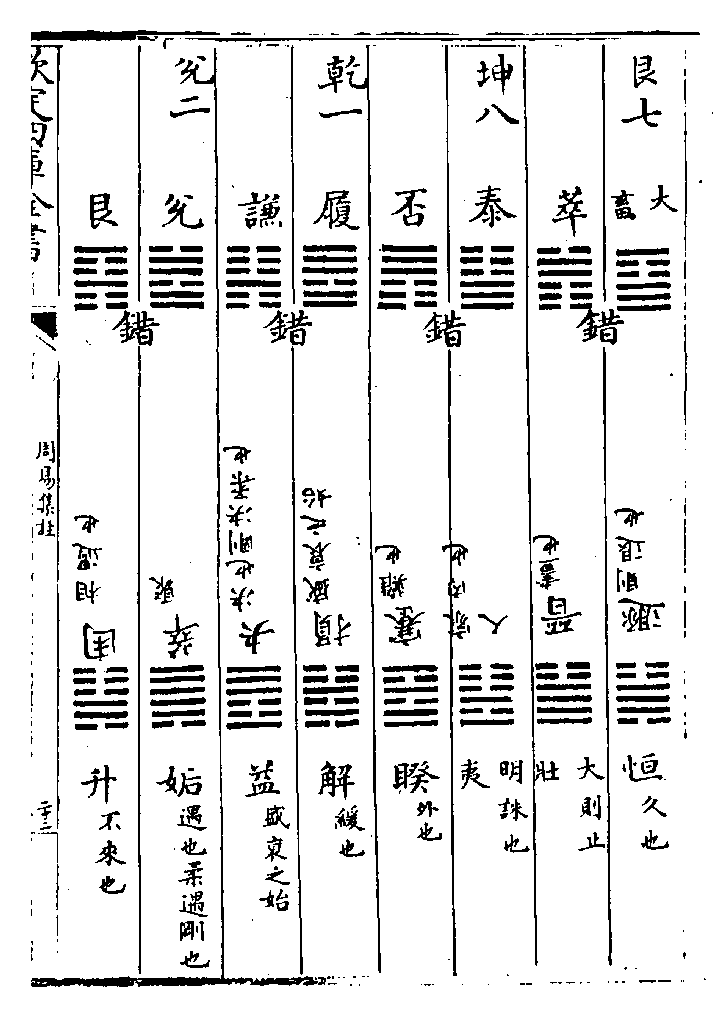 艮七
大畜
遯則退也
恒久也
萃
錯
晉晝也
大壯則止
坤八
泰
家人內也
明夷誅也
否
錯
蹇難也
睽外也
乾一
履
損盛衰之始
解緩也
謙
錯
夬決也剛決柔也
益盛衰之始
兌二
兌
萃聚
姤遇也柔遇剛也
艮
錯
困相遇也
升不來也
欽定四庫全書
周易集註